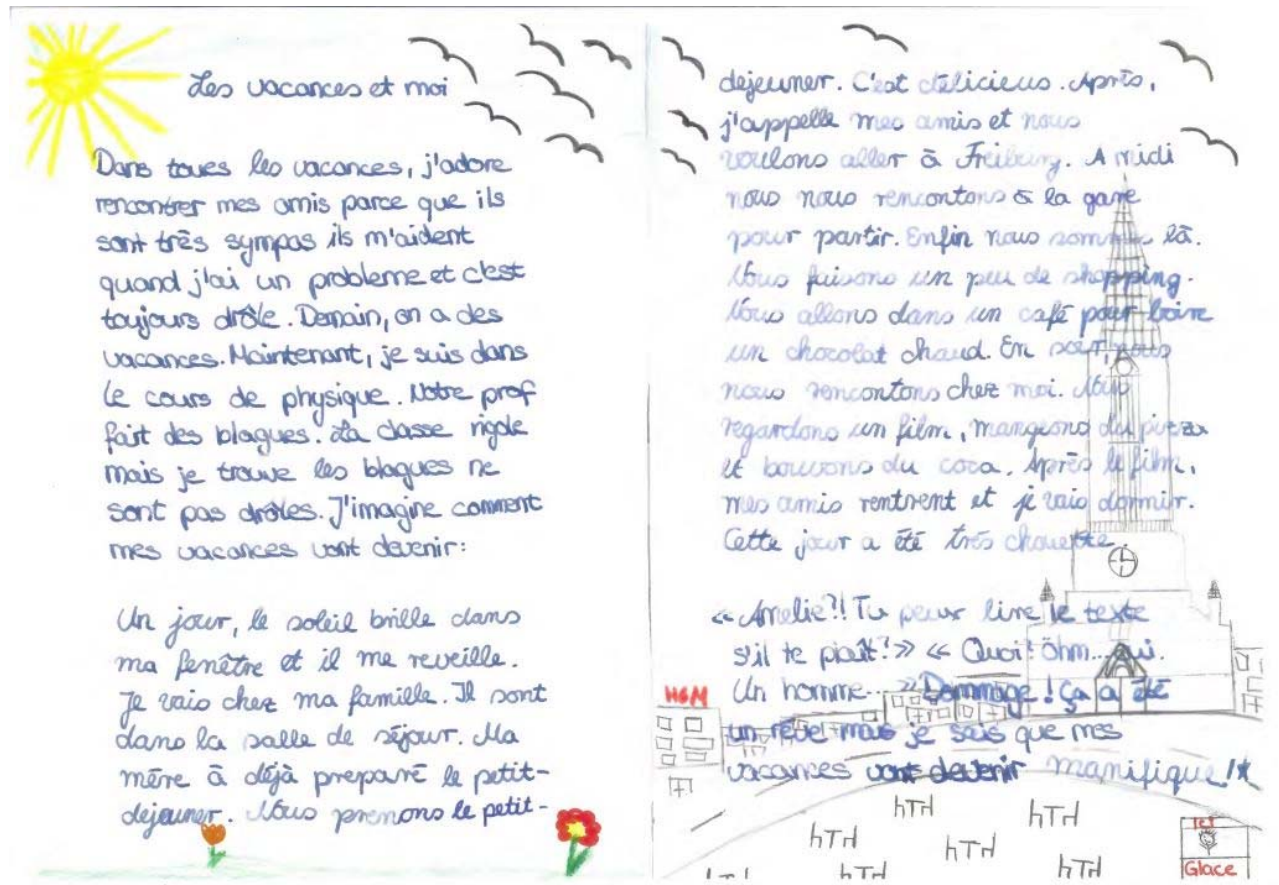 Les vacances et moi
Dans toues les vacances, j'adore
rencontrer mes amis parce que ils
sont très sympas ils m'aident
quand j'ai un probleme et c'est
toujours drôle. Demain, on a des
vacances. Maintenant, je suis dans
le cours de physique. Notre prof
fait des blagues. La classe rigole
mais je trouve les blagues ne
sont pas drôles. J'imagine comment
mes vacances vont devenir:
Un jour, le soleil brille dans
ma fenêtre et il me reveille.
Je vais chez ma famille. Il sont
dans la salle de séjour. Ma
mère à déjà preparé le petit-
dejeuner. Nous prenons le petit-
dejeuner. C'est délicieus. Après,
j'appelle mes amis et nous
voulons aller à Freiburg. A midi
nous nous rencontons à la gare
pour partir. Enfin nous sommes là.
Nous faisons un peu de shopping.
Nous allons dans un café pour boire
un chocolat chaud. En soir, nous
nous rencontons chez moi. Nous
regardons un film, mangeons du pizza
et bouvons du coca. Après le film,
mes amis rentrent et je vais dormir.
Cette jour a été très chouette.
« Amelie?! Tu peux lire le texte
s'il te plaît?» « Quoi? Öhm... oui.
Un homme...» Dommage! Ça a été
un rêve mais je sais que mes
vacances vont devenir manifique!
H&M
Glace